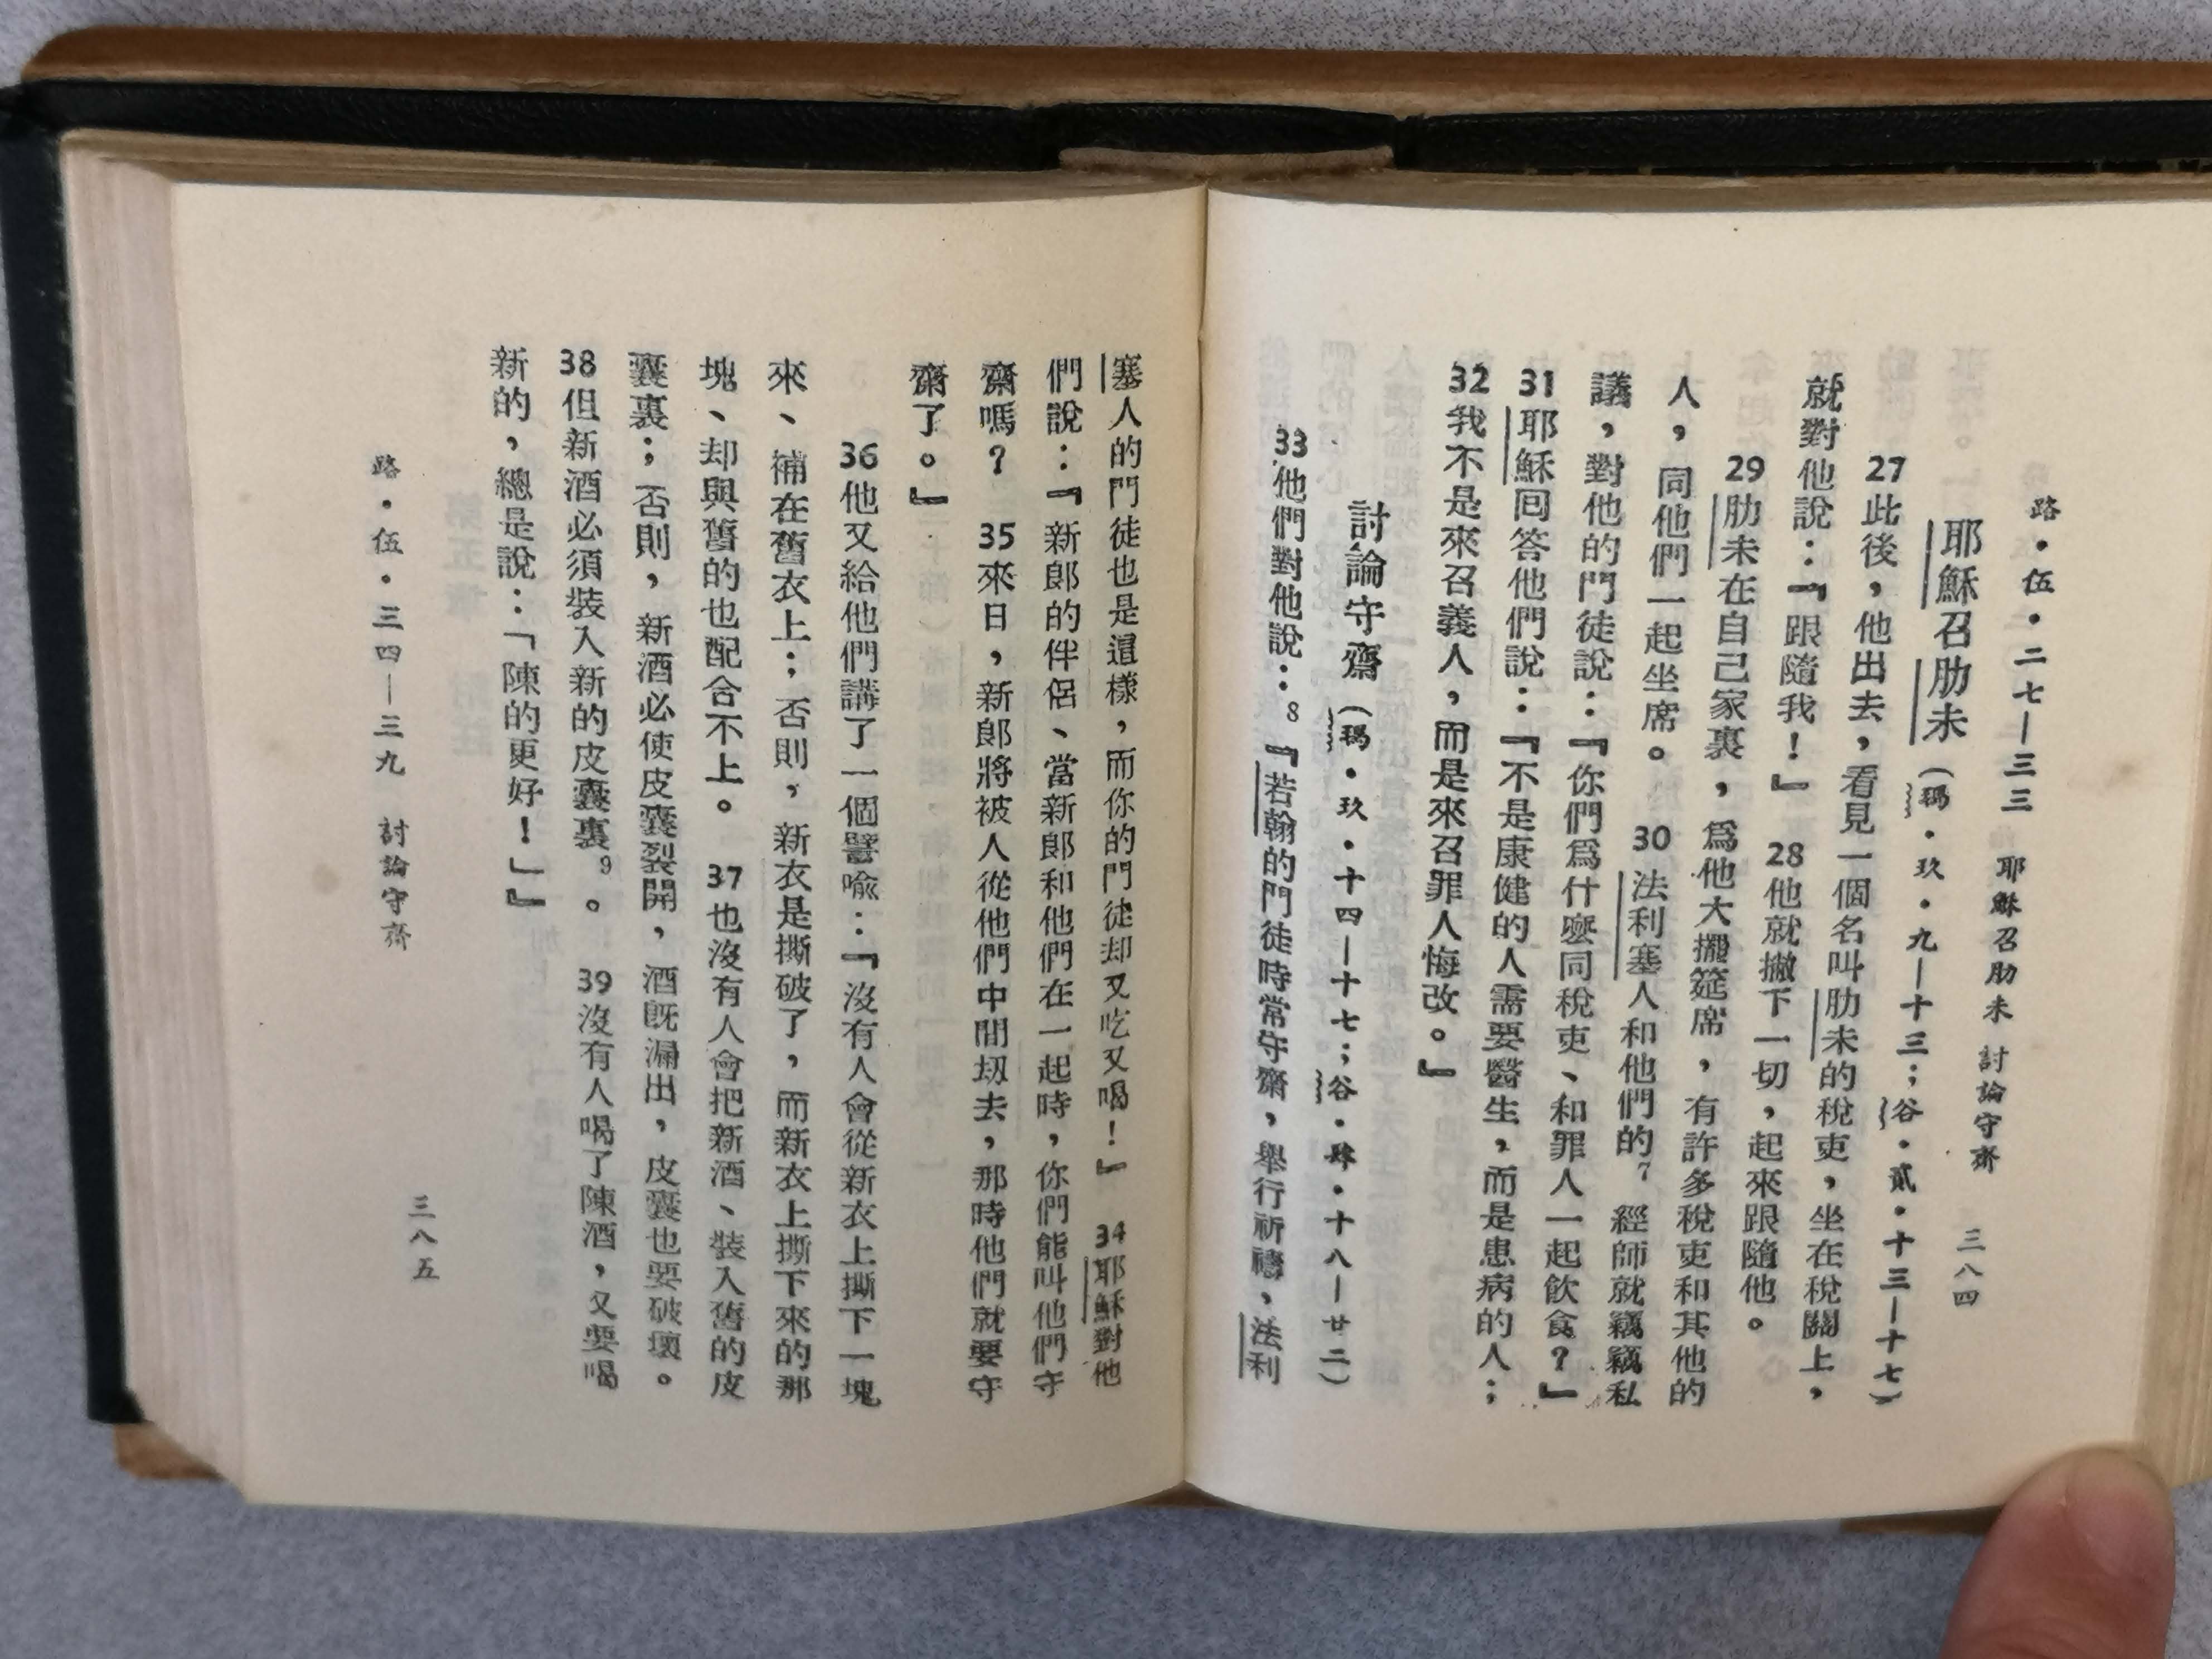 路・伍・二七—三三　耶穌召肋未　討論守齋　三八四
耶穌召肋未（瑪・玖・九—十三；谷・貳・十三—十七）
27此後，他出去，看見一個名叫肋未的稅吏，坐在稅關上，
就對他說：『跟隨我！』　28他就撇下一切，起來跟隨他。
29肋未在自己家裏，爲他大擺筵席，有許多稅吏和其他的
人，同他們一起坐席。　30法利塞人和他們的7經師就竊竊私
議，對他的門徒說：『你們爲什麼同稅吏、和罪人一起飲食？』
31耶穌囘答他們說：『不是康健的人需要醫生，而是患病的人；
32我不是來召義人，而是來召罪人悔改。』
討論守齋（瑪・玖・十四—十七；谷・肆・十八—廿二）
33他們對他說：8『若翰的門徒時常守齋，舉行祈禱，法利
塞人的門徒也是這樣，而你的門徒却又吃又喝！』　34耶穌對他
們說：『新郎的伴侶、當新郎和他們在一起時，你們能叫他們守
齋嗎？　35來日，新郎將被人從他們中間刼去，那時他們就要守
齋了。』
36他又給他們講了一個譬喩：『沒有人會從新衣上撕下一塊
來、補在舊衣上；否則，新衣是撕破了，而新衣上撕下來的那
塊、却與舊的也配合不上。　37也沒有人會把新酒、裝入舊的皮
囊裏；否則，新酒必使皮囊裂開，酒旣漏出，皮囊也要破壞。
38但新酒必須裝入新的皮囊裏9。　39沒有人喝了陳酒，又要喝
新的，總是說：「陳的更好！」』
路・伍・三四—三九　討論守齋　三八五